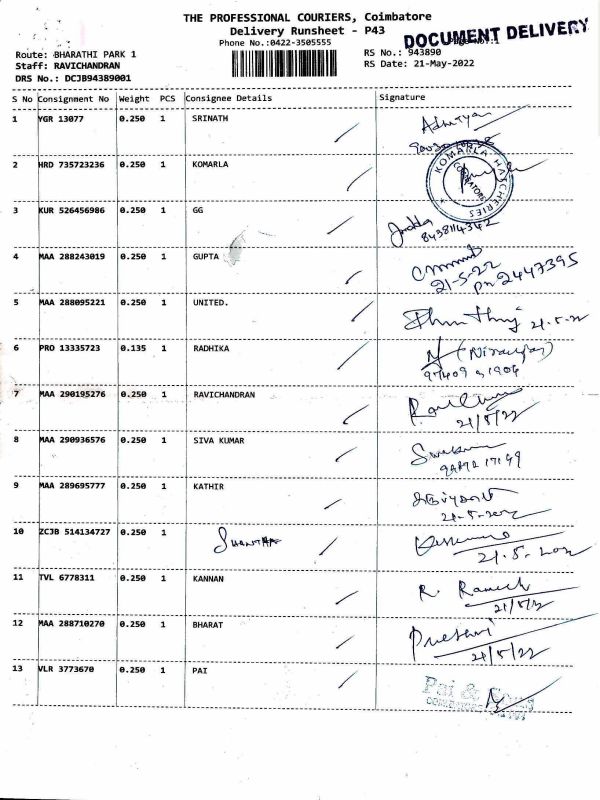 THE PROFESSIONAL COURIERS, Coimbatore
Delivery Runsheet - P43
DOCUMENT DELIVERY
Phone No.:0422-3505555
Route: BHARATHI PARK 1
RS No.: 943890
Staff: RAVICHANDRAN
RS Date: 21-May-2022
DRS No.: DCJB94389001
S No Consignment No Weight PCS Consignee Details Signature
1 YGR 13077 0.250 1 SRINATH
2 HRD 735723236 0.250 1 KOMARLA
KOMARLA HATCHERIES COIMBATORE
3 KUR 526456986 0.250 1 GG
8438114342
4 MAA 288243019 0.250 1 GUPTA
21-5-22
Pn 2447395
5 MAA 288095221 0.250 1 UNITED. 21.5.22
6 PRO 13335723 0.135 1 RADHIKA
7 MAA 290195276 0.250 1 RAVICHANDRAN
21/5/22
8 MAA 290936576 0.250 1 SIVA KUMAR
9 MAA 289695777 0.250 1 KATHIR
21-5-2022
10 ZCJB 514134727 0.250 1
21.5.2022
11 TVL 6778311 0.250 1 KANNAN R. Ramesh
21/5/22
12 MAA 288710270 0.250 1 BHARAT
21/5/22
13 VLR 3773670 0.250 1 PAI Pai & Sons